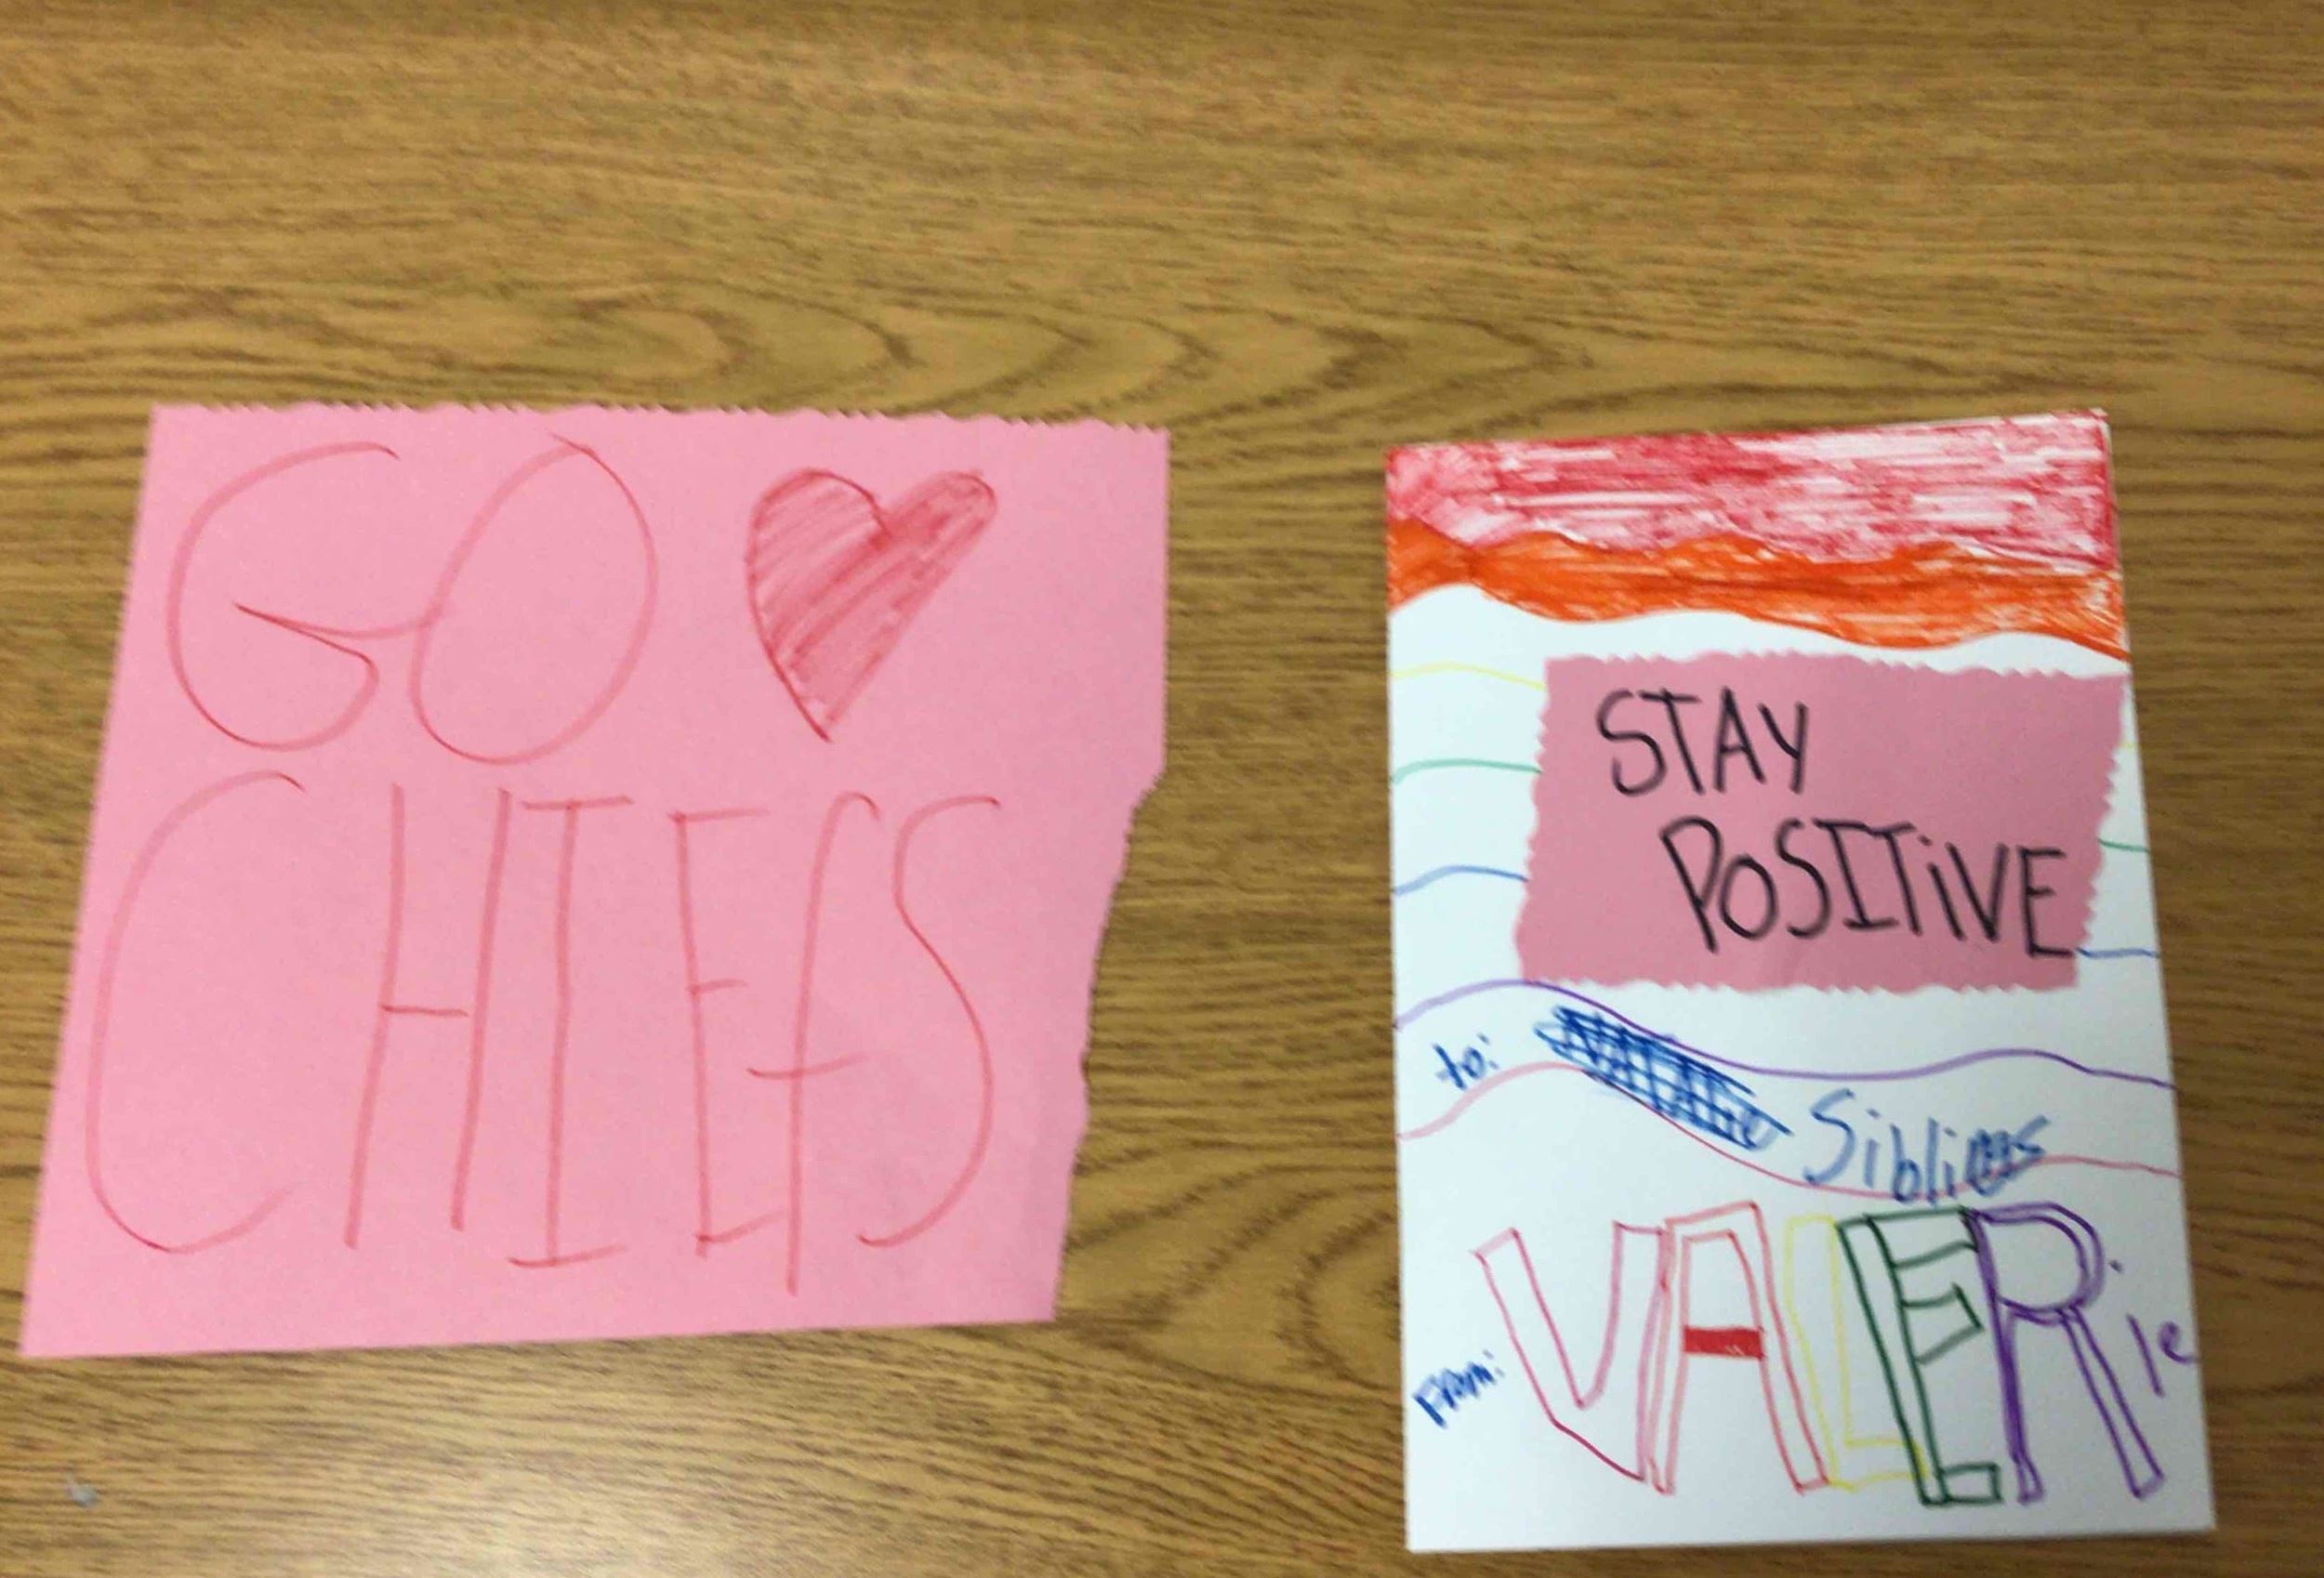 GO
CHIEfS
STAY
POSITiVE
to:
Siblings
From: VALERie